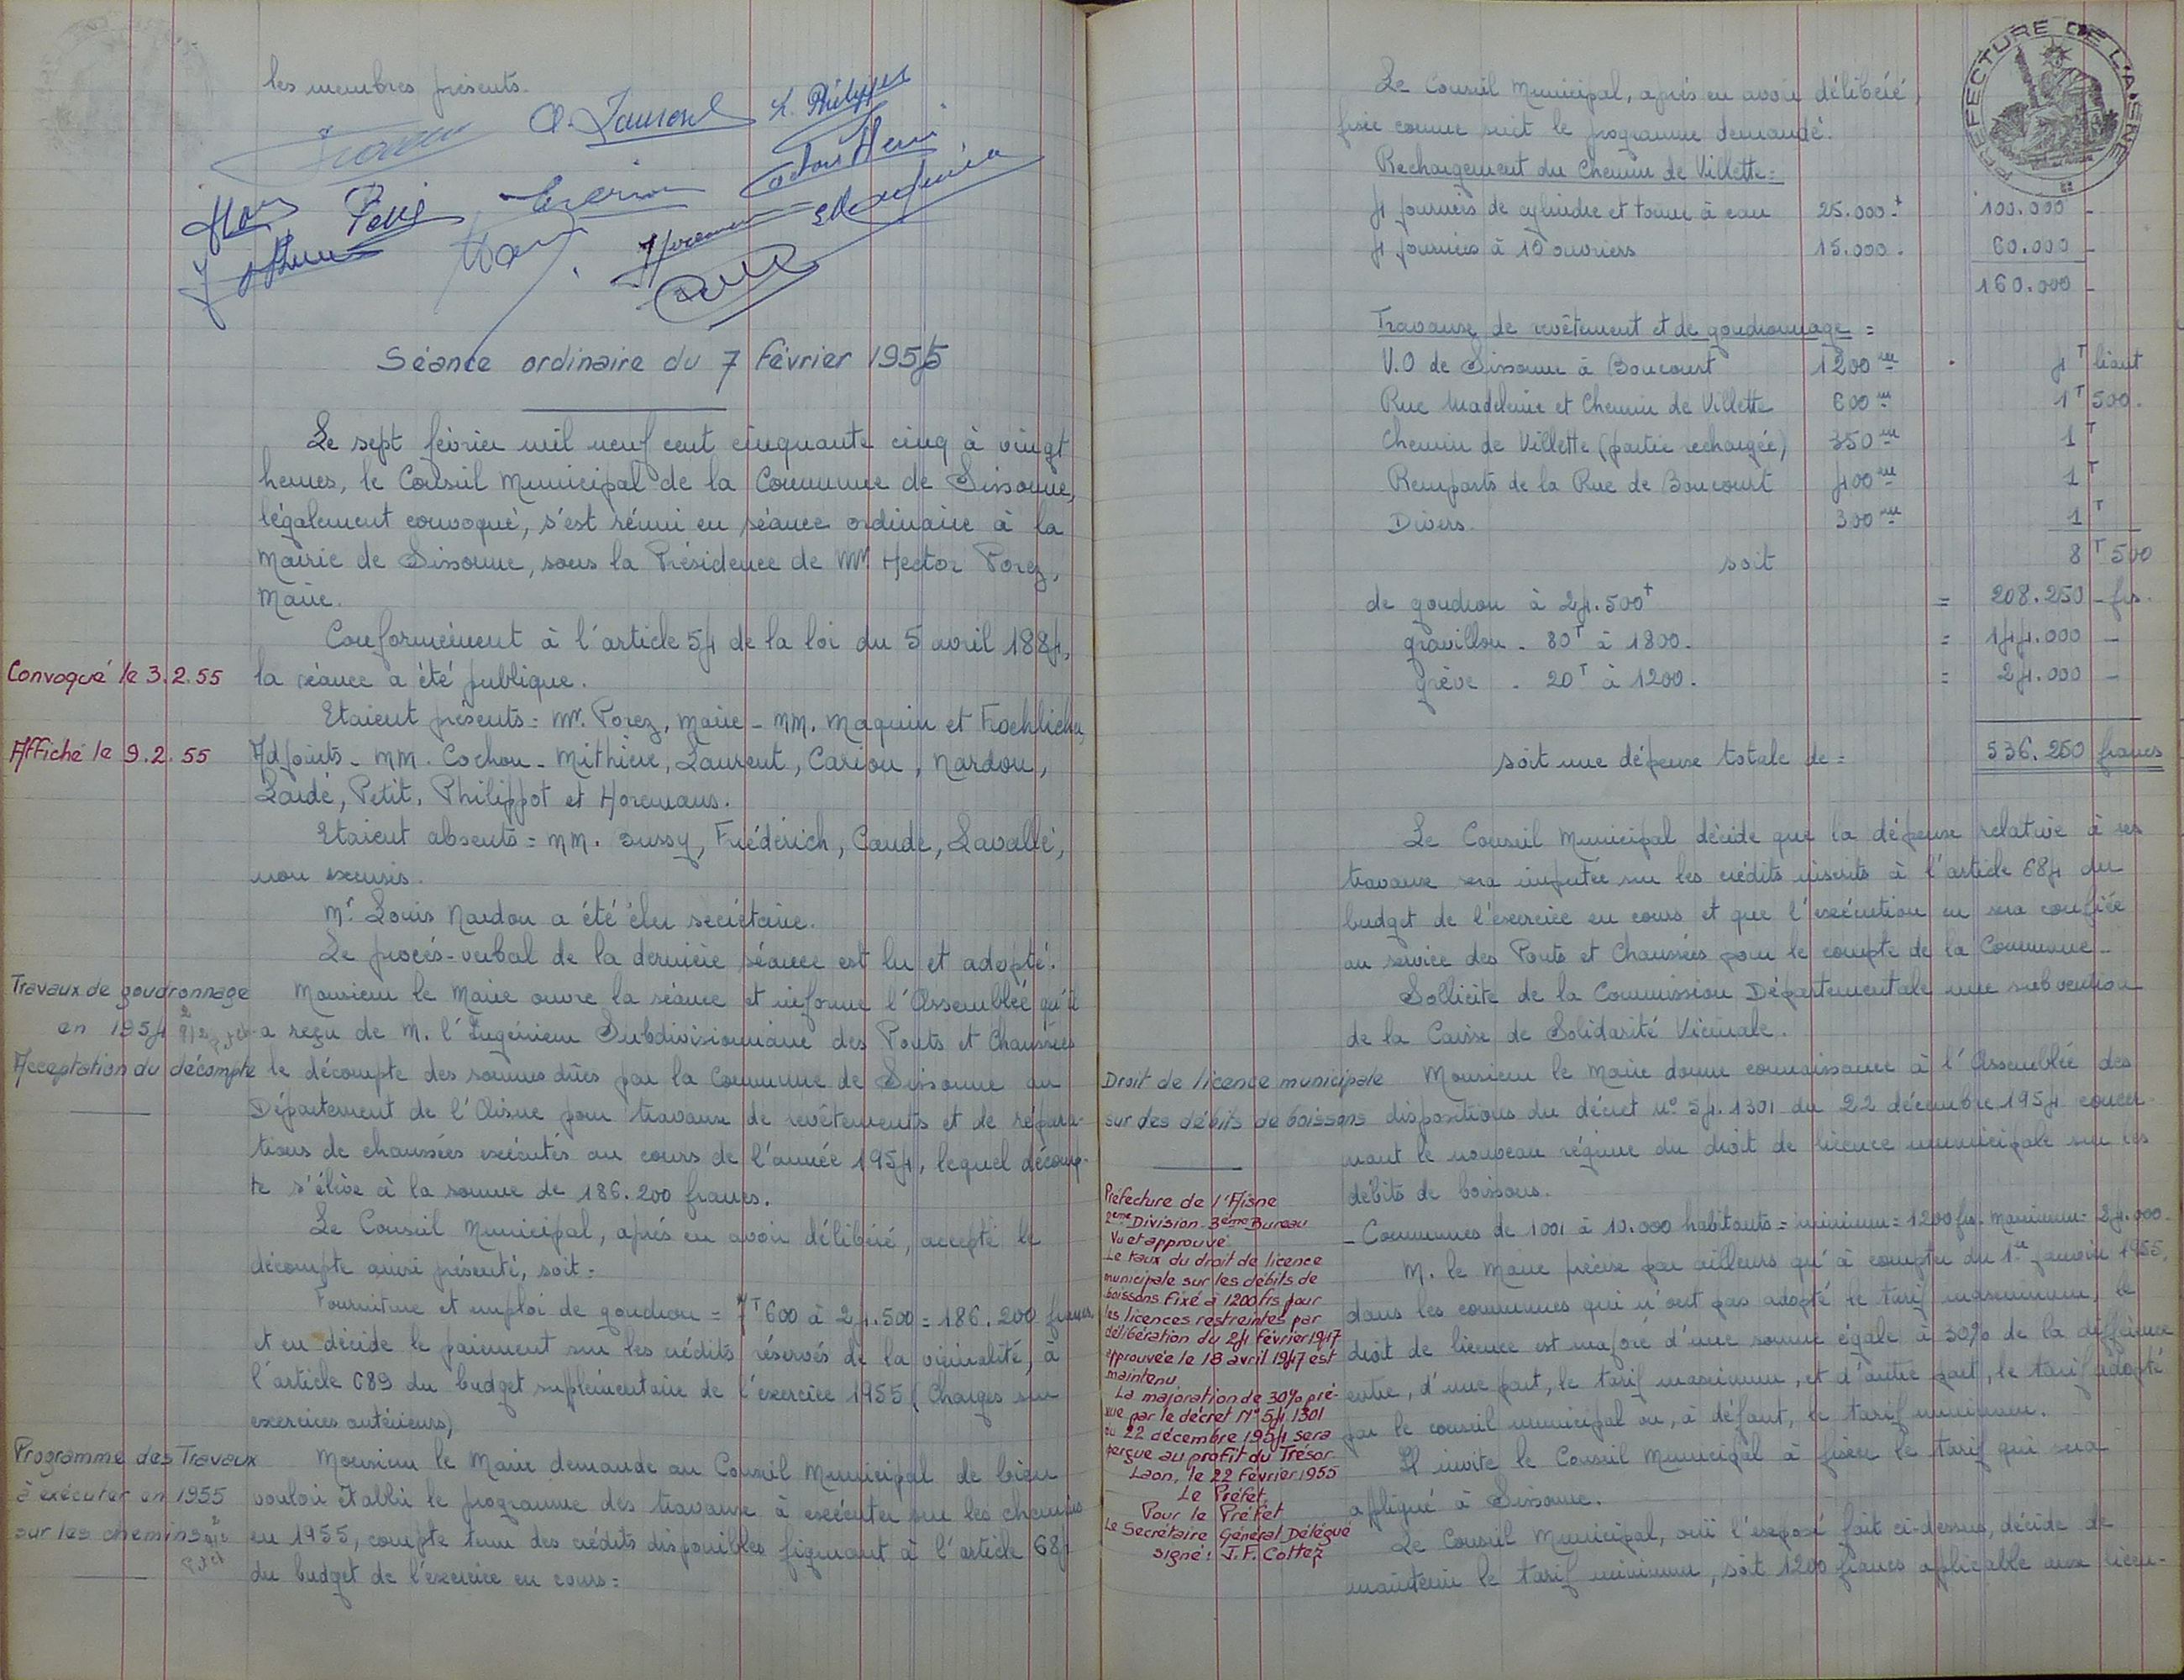 les membres présents.
Séance ordinaire du 7 Février 1955
Le sept février mil neuf cent cinquante cinq à vingt
heures, le Conseil Municipal de la Commune de Sissonne,
légalement convoqué, s'est réuni en séance ordinaire à la
Mairie de Sissonne, sous la Présidence de Mr Hector Porez,
Maire.
Conformément à l'article 54 de la loi du 5 avril 1884,
Convoqué le 3.2.55
la séance a été publique.
Etaient présents = Mr. Porez, Maire - MM. Maquin et Froehlicher,
Affiché le 9.2.55
Adjoints - MM. Cochon - Mithière, Laurent, Cariou, Nardou,
Laidé, Petit, Philippot et Horemans.
Etaient absents = MM. Dussy, Frédérich, Caude, Lavallé,
non excusés.
Mr. Louis Nardou a été élu secrétaire.
Le procès-verbal de la dernière séance est lu et adopté.
Travaux de goudronnage
en 1954
Acceptation du décompte
Monsieur le Maire ouvre la séance et informe l'Assemblée qu'il
a reçu de M. l'Ingénieur Subdivisionnaire des Ponts et Chaussées
le décompte des sommes dûes par la Commune de Sissonne au
Département de l'Aisne pour travaux de revêtements et de répara-
tions de chaussées exécutés au cours de l'année 1954, lequel décomp-
te s'élève à la somme de 186.200 francs.
Le Conseil Municipal, après en avoir délibéré, accepte le
décompte ainsi présenté, soit =
Fourniture et emploi de goudron = 7T600 à 24.500 = 186.200 francs.
et en décide le paiement sur les crédits réservés de la vicinalité, à
l'article 689 du budget suplémentaire de l'exercice 1955 (Charges sur
exercices antérieurs)
Programme des Travaux
à exécuter en 1955
sur les chemins
Monsieur le Maire demande au Conseil Municipal de bien
vouloir établir le programme des travaux à exécuter sur les chemins
en 1955, compte tenu des crédits disponibles figurant à l'article 684
du budget de l'exercice en cours =
PREFECTURE DE L'AISNE
Le Conseil Municipal, après en avoir délibéré,
fixe comme suit le programme demandé.
Rechargement du Chemin de Villette =
4 journées de cylindre et tonne à eau 25.000 - 100.000 -
4 journées à 10 ouvriers 15.000. 60.000 -
160.000 -
Travaux de revêtement et de goudronnage =
V.O de Sissonne à Boncourt 1200 m 4T liant
Rue Madeleine et Chemin de Villette 600 m 1T 500.
Chemin de Villette (partie rechargée) 350 m 1T
Remparts de la Rue de Boncourt 400 m 1T
Divers 300 m 1T
soit 8T 500
de goudron à 24.500 = 208.250 - frs.
gravillon - 80T à 1800. = 144.000 -
grève - 20T à 1200. = 24.000 -
soit une dépense totale de = 536.250 francs
Le Conseil Municipal décide que la dépense relative à ces
travaux sera imputée sur les crédits inscrits à l'article 684 du
budget de l'exercice en cours et que l'exécution en sera confiée
au service des Ponts et Chaussées pour le compte de la Commune -
Sollicite de la Commission Départementale une subvention
de la Caisse de Solidarité Vicinale.
Droit de licence municipale
sur des débits de boissons
Monsieur le Maire donne connaissance à l'Assemblée des
dispositions du décret N° 54.1301 du 22 décembre 1954 concer-
nant le nouveau régime du droit de licence municipale sur les
débits de boissons.
- Communes de 1001 à 10.000 habitants = minimum = 1200 frs. Maximum = 24.000.
M. le Maire précise par ailleurs qu'à compter du 1er janvier 1955,
dans les communes qui n'ont pas adopté le tarif maximum, le
droit de licence est majoré d'une somme égale à 30% de la différence
entre, d'une part, le tarif maximum, et d'autre part, le tarif adopté
par le conseil municipal ou, à défaut, le tarif minimum.
Il invite le Conseil Municipal à fixer le tarif qui sera
appliqué à Sissonne.
Le Conseil Municipal, ouï l'exposé fait ci-dessus, décide de
maintenir le tarif minimum, soit 1200 francs applicable aux licen-
Préfecture de l'Aisne
2ème Division - 3ème Bureau
Vu et approuvé
Le taux du droit de licence
municipale sur les débits de
boissons fixé à 1200 frs pour
les licences restreintes par
délibération du 24 février 1947
approuvée le 18 avril 1947 est
maintenu
La majoration de 30% pré-
vue par le décret N° 54 1301
du 22 décembre 1954 sera
perçue au profit du Trésor.
Laon, le 22 Février 1955
Le Préfet,
Pour le Préfet
Le Secrétaire Général Délégué
signé : J.F. Cottez